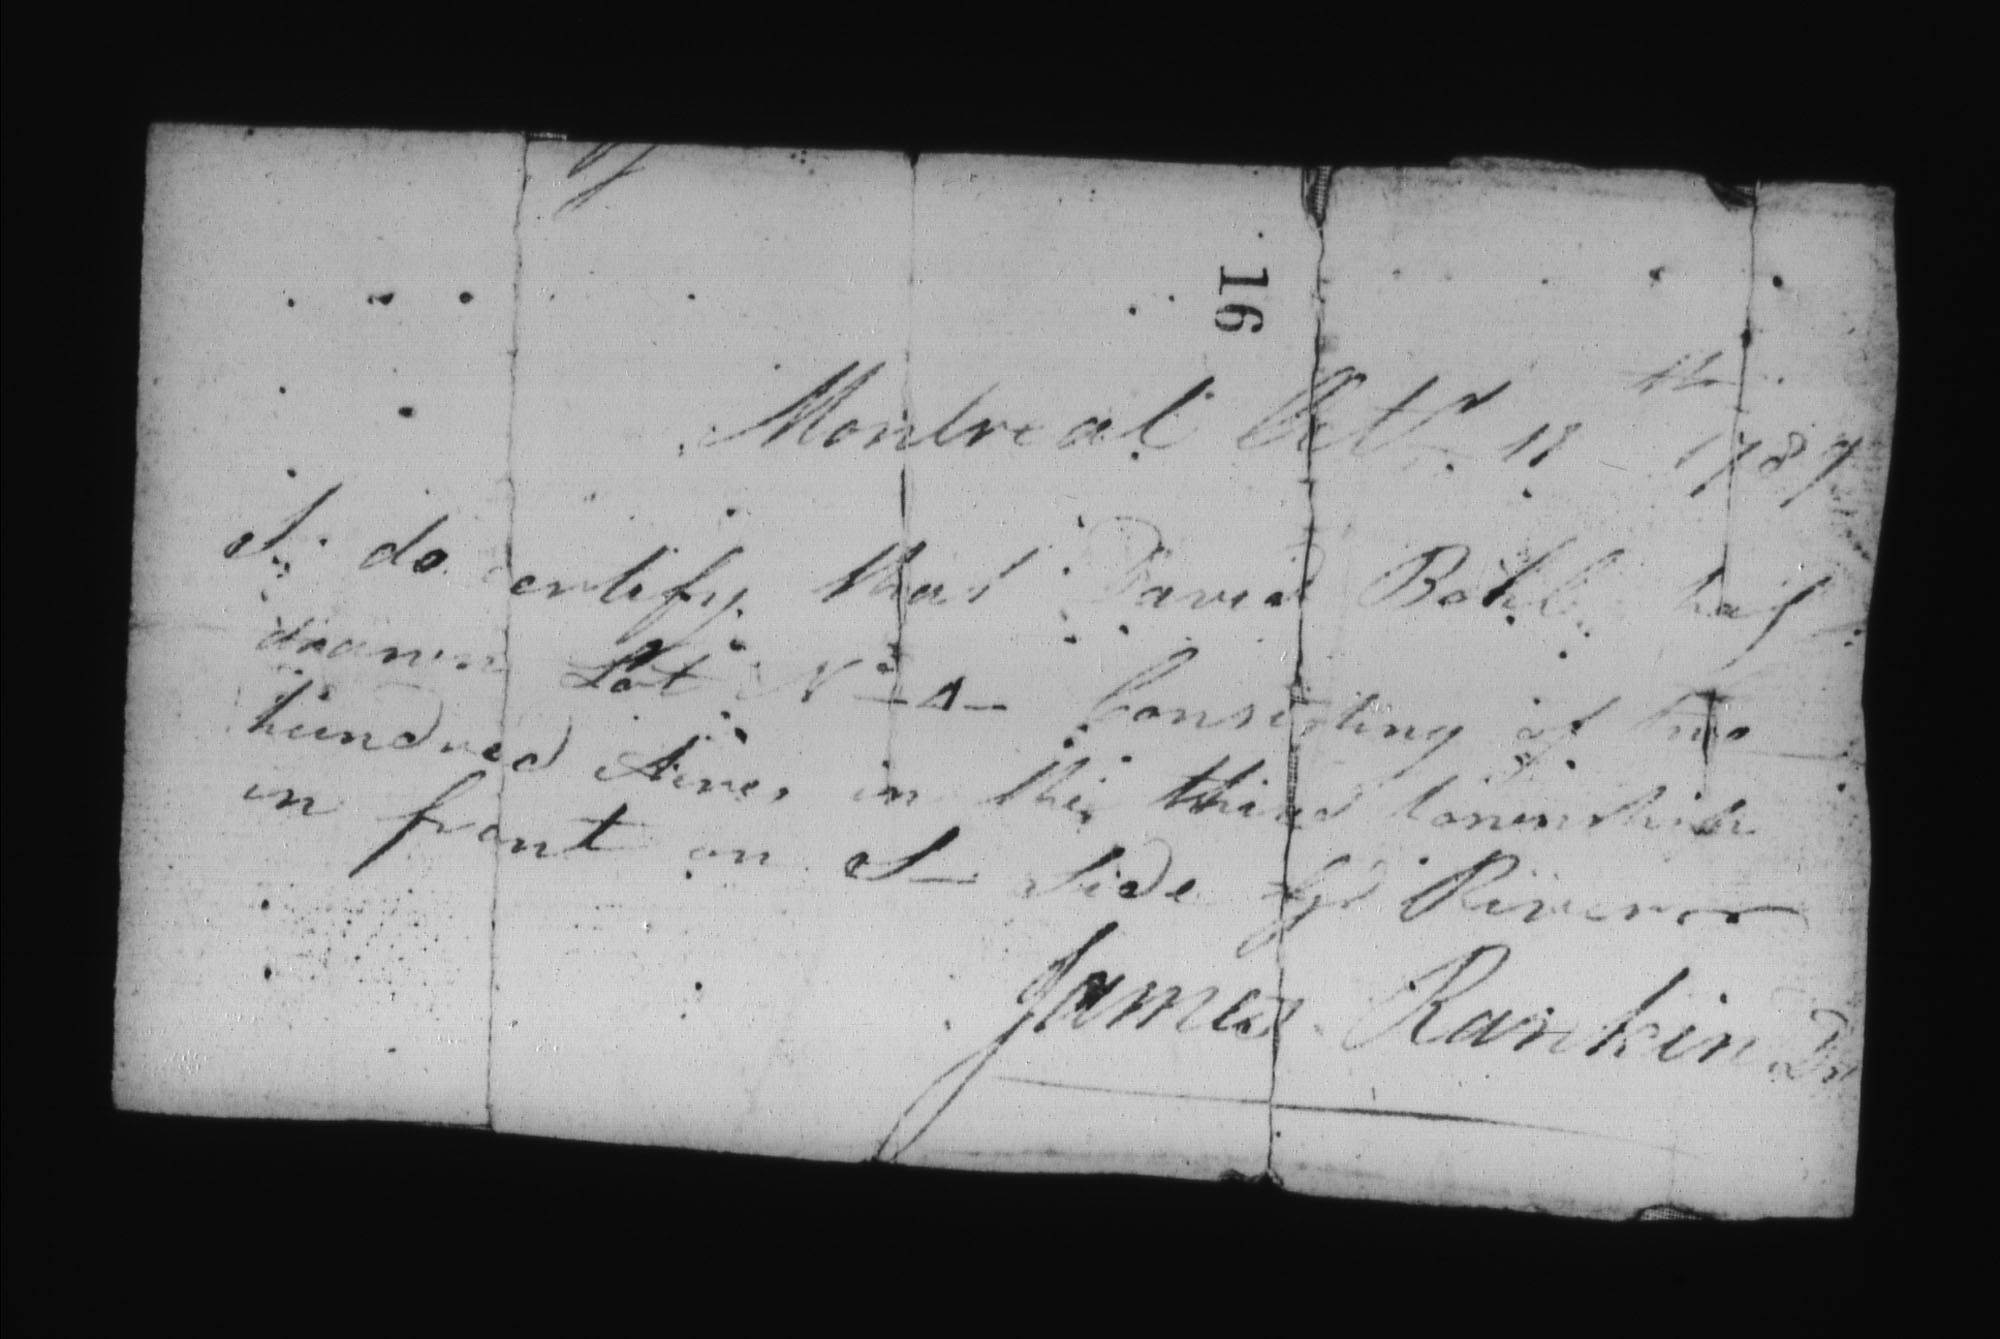 16
Montreal Octr. 11th 1787
I do certify that David Bohl has
drawn Lot No - 4 - Consisting of two
hundred Acres in the third township
in front on S- Side Gd River
James Rankin